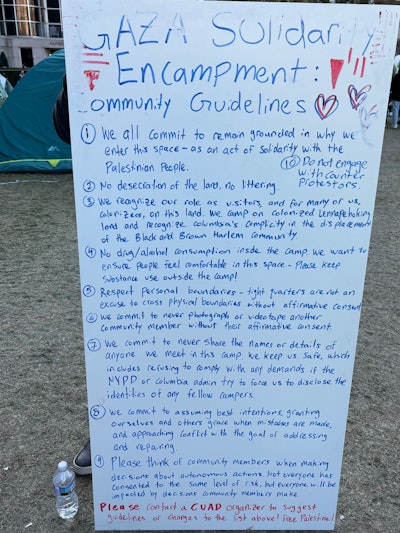 GAZA Solidarity
Encampment:
Community Guidelines
① We all commit to remain grounded in why we
enter this space - as an act of solidarity with the
Palestinian People.
⑩ Do not engage
with counter
protestors.
② No desecration of the land, no littering.
③ We recognize our role as visitors, and for many of us,
colonizers, on this land. We camp on colonized Lennapehoking
land and recognize Columbia's complicity in the displacement
of the Black and Brown Harlem Community.
④ No drug/alcohol consumption inside the camp. We want to
ensure people feel comfortable in this space - Please keep
substance use outside the camp!
⑤ Respect personal boundaries - tight quarters are not an
excuse to cross physical boundaries without affirmative consent
⑥ We commit to never photograph or videotape another
community member without their affirmative consent.
⑦ We commit to never share the names or details of
anyone we meet in this camp. We keep us safe, which
includes refusing to comply with any demands if the
NYPD or Columbia admin try to force us to disclose the
identities of any fellow campers.
⑧ We commit to assuming best intentions, granting
ourselves and others grace when mistakes are made,
and approaching conflict with the goal of addressing
and repairing.
⑨ Please think of community members when making
decisions about autonomous actions. Not everyone has
consented to the same level of risk, but everyone will be
impacted by decisions community members make.
Please contact a CUAD organizer to suggest
guidelines or changes to the list above! Free Palestine!